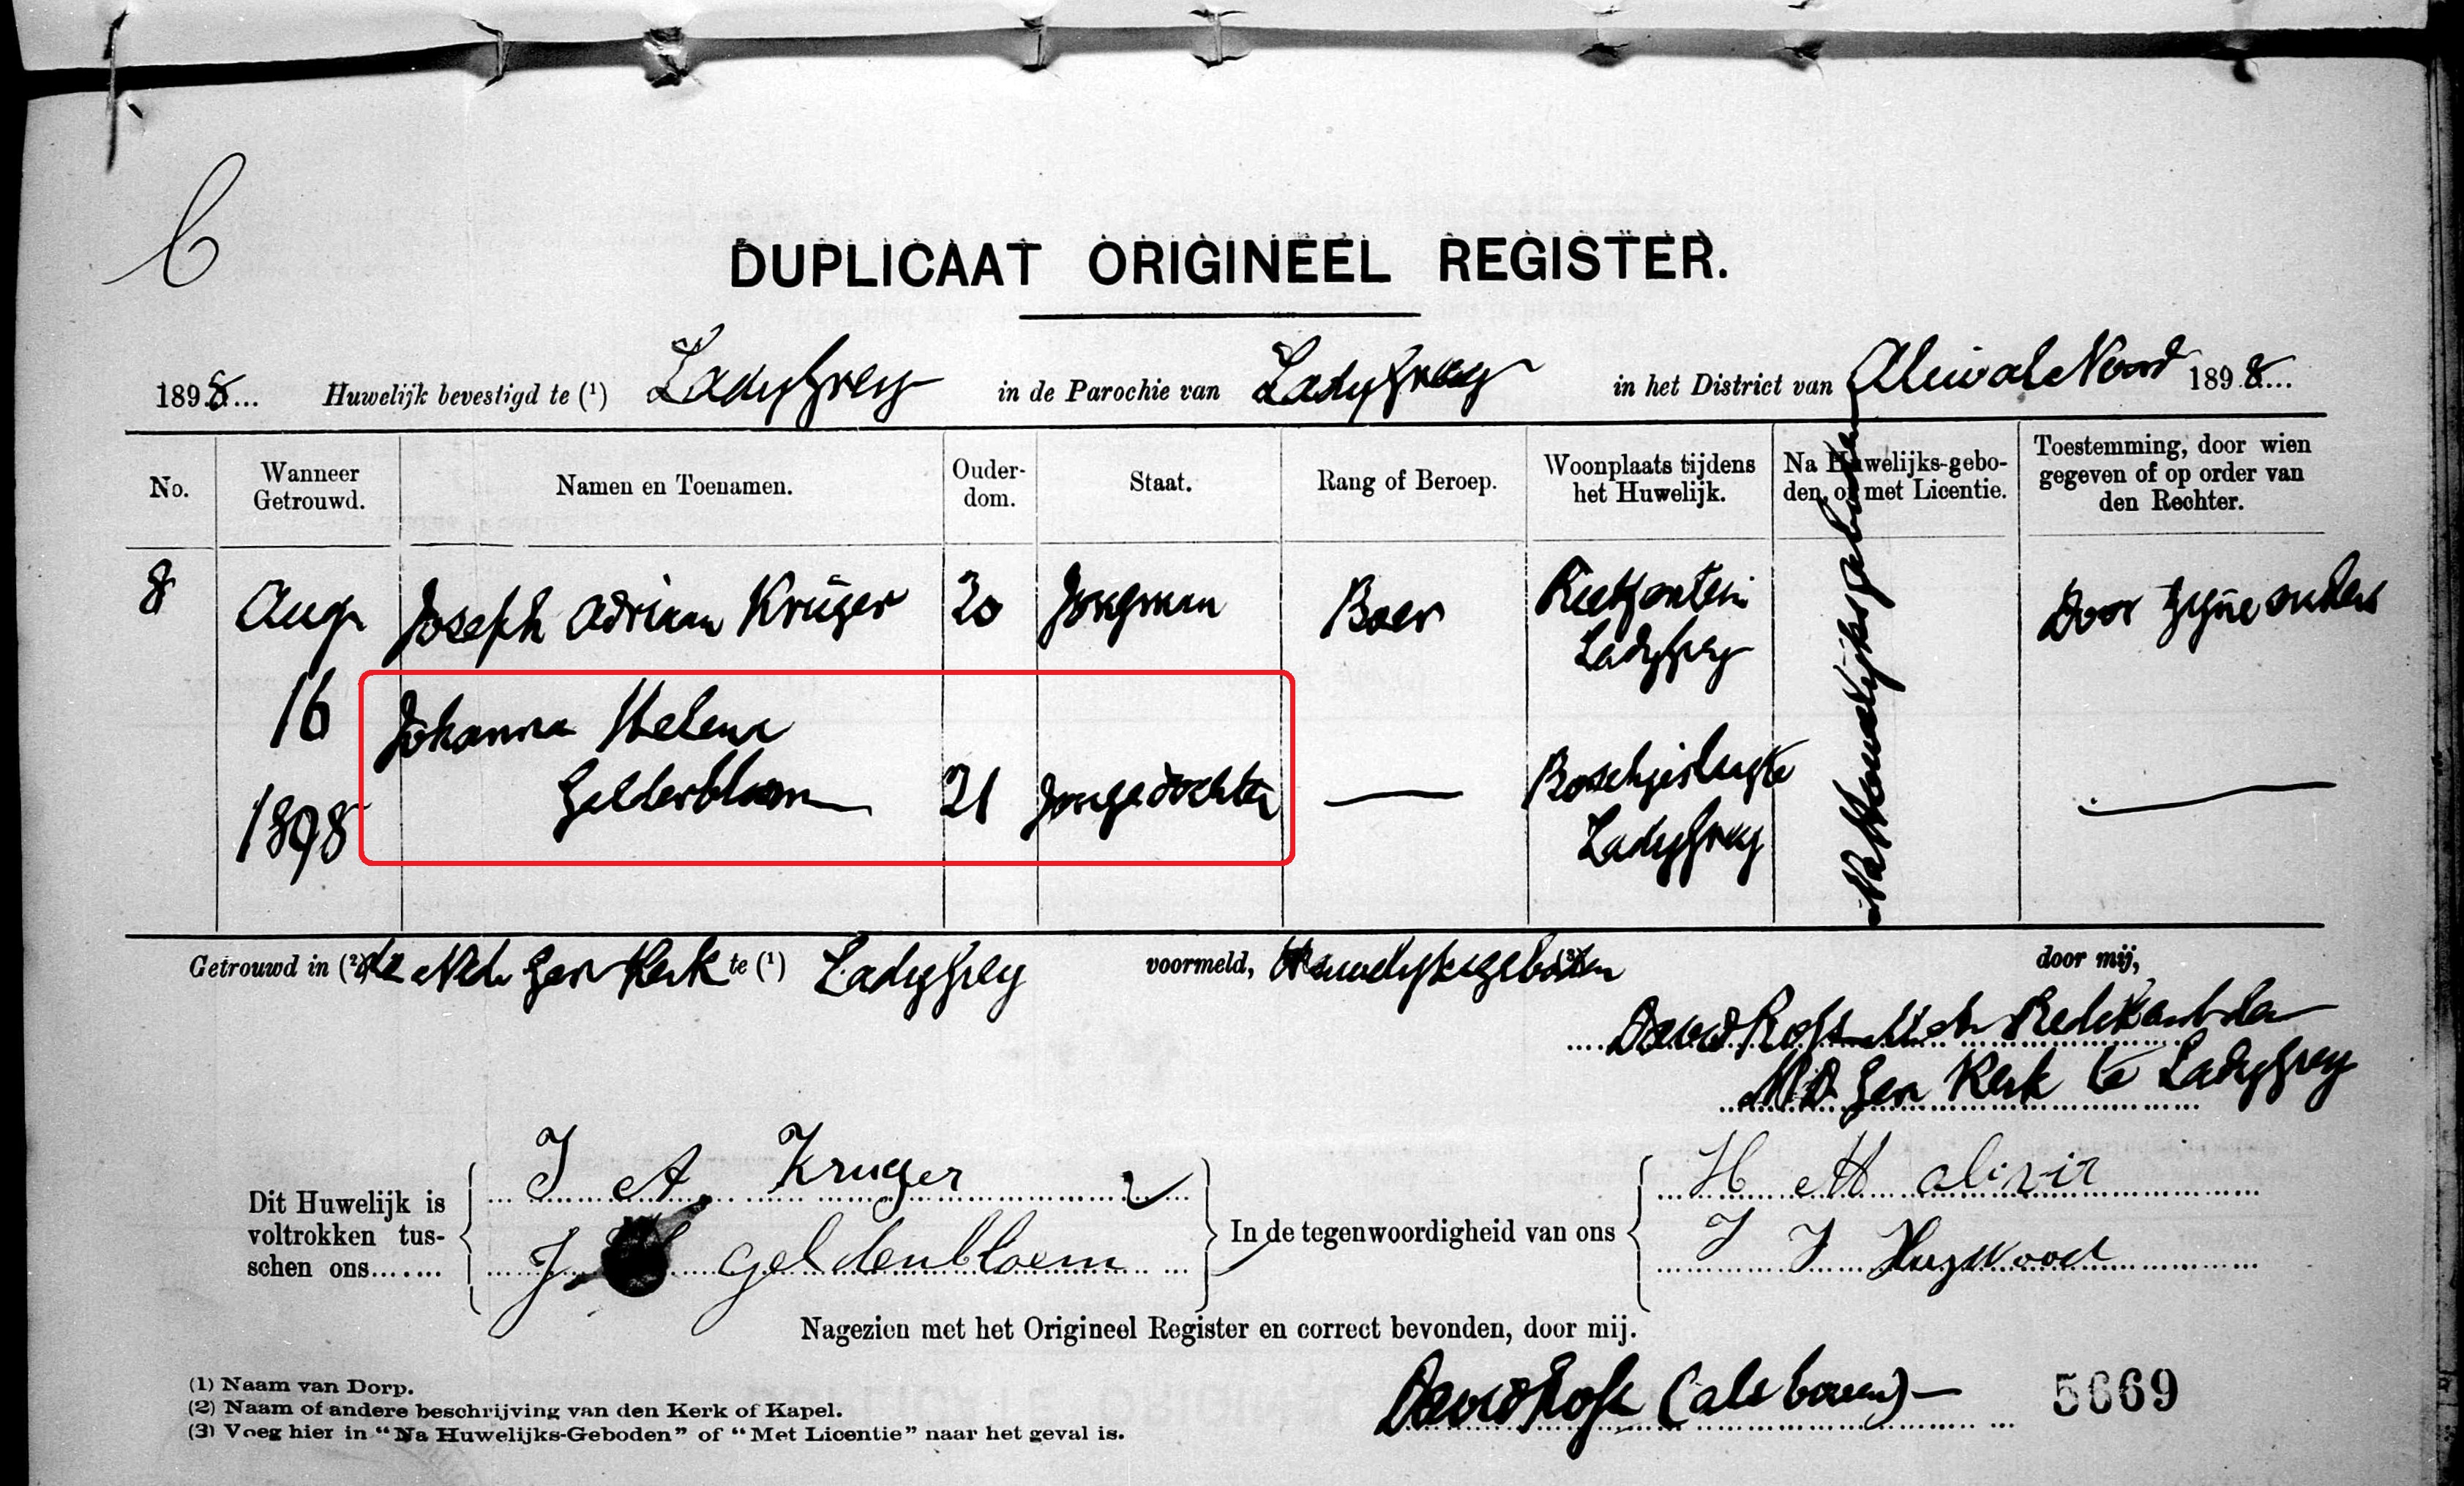 C
DUPLICAAT ORIGINEEL REGISTER.
1898... Huwelijk bevestigd te (¹) Lady Grey in de Parochie van Lady Grey in het District van Aliwal Noord 1898...
No. Wanneer Getrouwd. Namen en Toenamen. Ouder-dom. Staat. Rang of Beroep. Woonplaats tijdens het Huwelijk. Na Huwelijks-gebo-den, of met Licentie. Toestemming, door wien gegeven of op order van den Rechter.
8 Aug Joseph Adriaan Krüger 20 Jongman Boer Rietfontein Lady Grey Door zijne ouders
16 Johanna Helena
1898 Gelderbloem 21 Jongedochter — Lady Grey —
Na Huwelijksgeboden
Getrouwd in (²) de Ned Ger Kerk te (¹) Lady Grey voormeld, Huwelijksgeboden door mij,
David Ross Predikant der
Ger Kerk te Lady Grey
Dit Huwelijk is voltrokken tus-schen ons....... J A Kruger
J geldenbloem
In de tegenwoordigheid van ons H M olivir
J J
Nagezien met het Origineel Register en correct bevonden, door mij.
David Ross (als boven)
5669
(1) Naam van Dorp.
(2) Naam of andere beschrijving van den Kerk of Kapel.
(3) Voeg hier in “Na Huwelijks-Geboden” of “Met Licentie” naar het geval is.